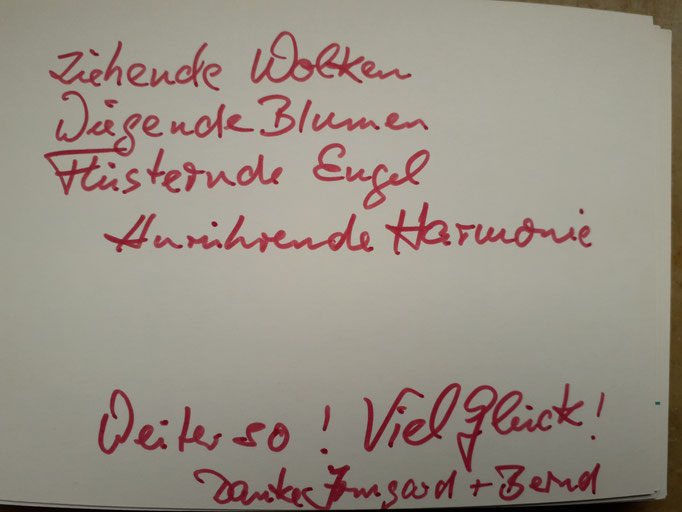 Ziehende Wolken
Wiegende Blumen
Flüsternde Engel
Anrührende Harmonie
Weiter so! Viel Glück!
Danke, Irmgard + Bernd